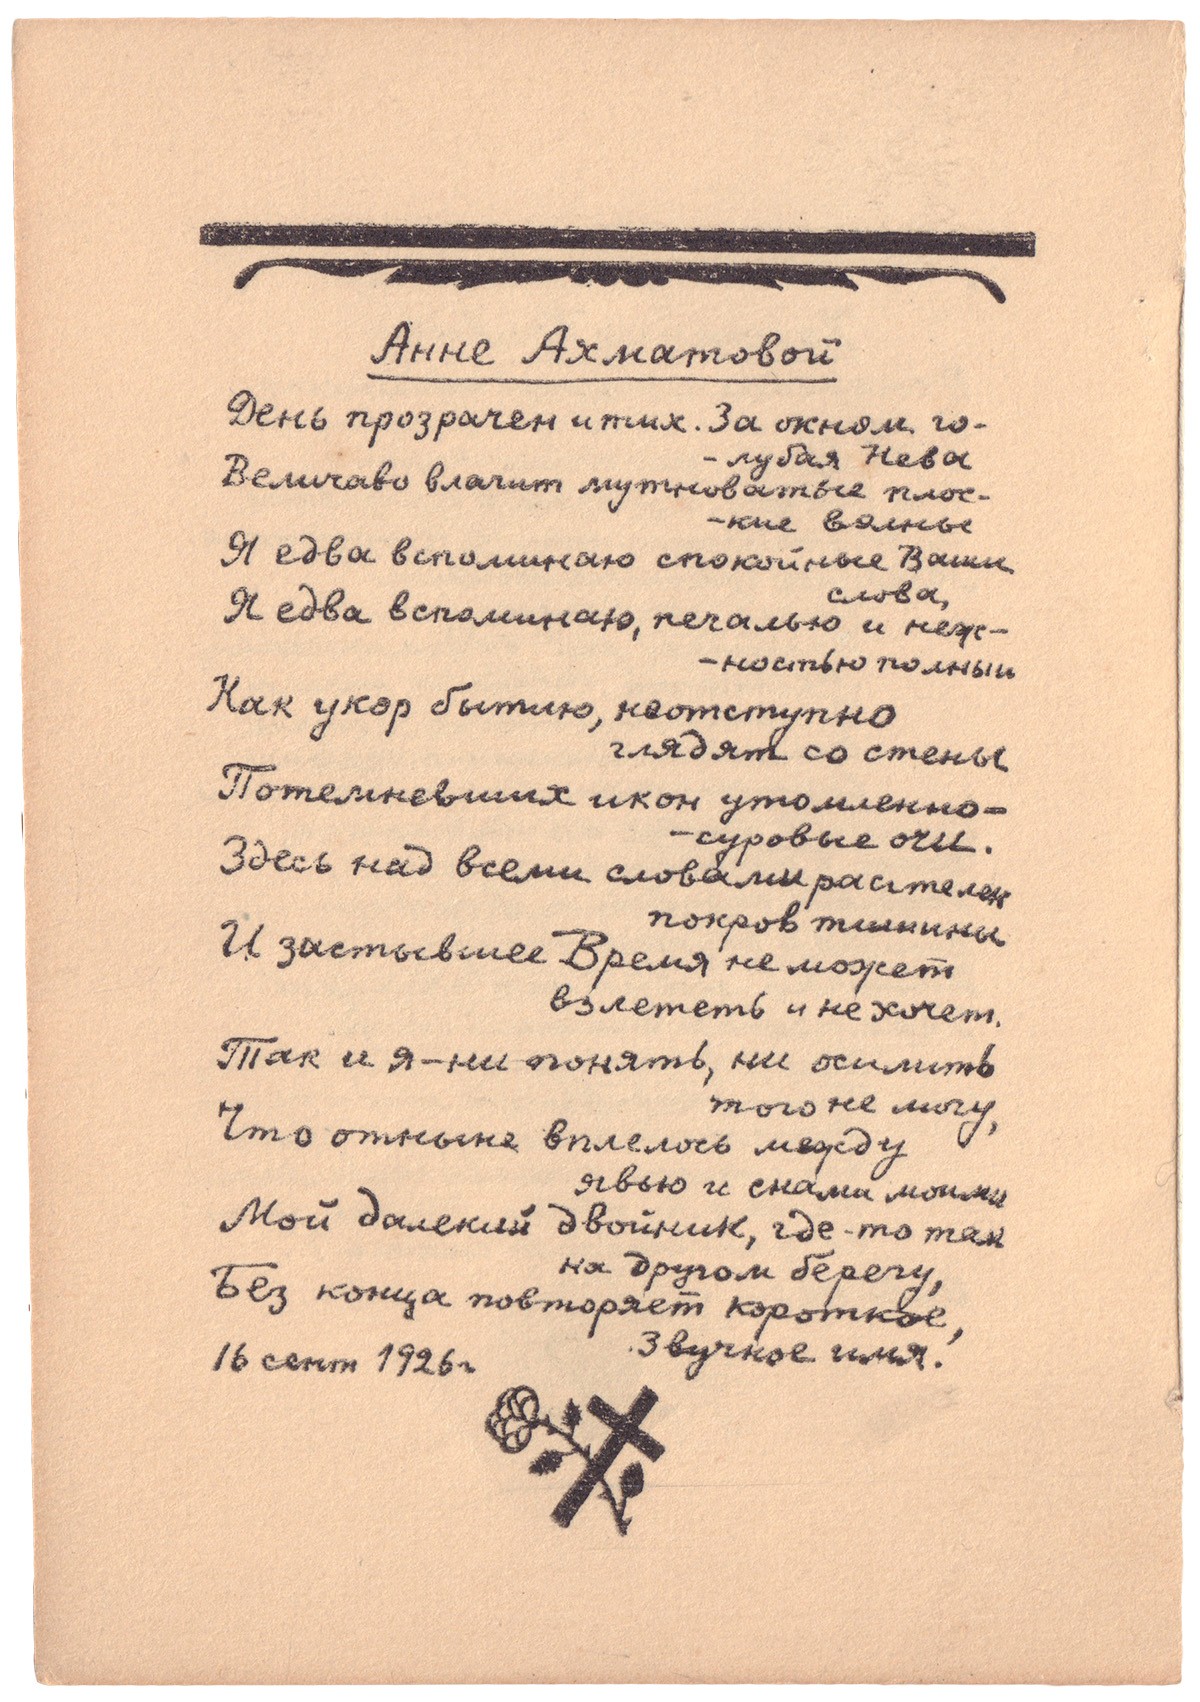 Анне Ахматовой
День прозрачен и тих. За окном го-
-лубая Нева
Величаво влачит мутноватые плос-
-кие волны
Я едва вспоминаю спокойные Ваши
слова,
Я едва вспоминаю, печалью и неж-
-ностью полный
Как укор бытию, неотступно
глядят со стены
Потемневших икон утомленно-
-суровые очи.
Здесь над всеми словами растелен
покров тишины
И застывшее Время не может
взлететь и не хочет.
Так и я-ни понять, ни осилить
того не могу,
Что отныне вплелось между
явью и снами моими
Мой далекий двойник, где-то там
на другом берегу,
Без конца повторяет короткое,
Звучное имя.
16 сент 1926г